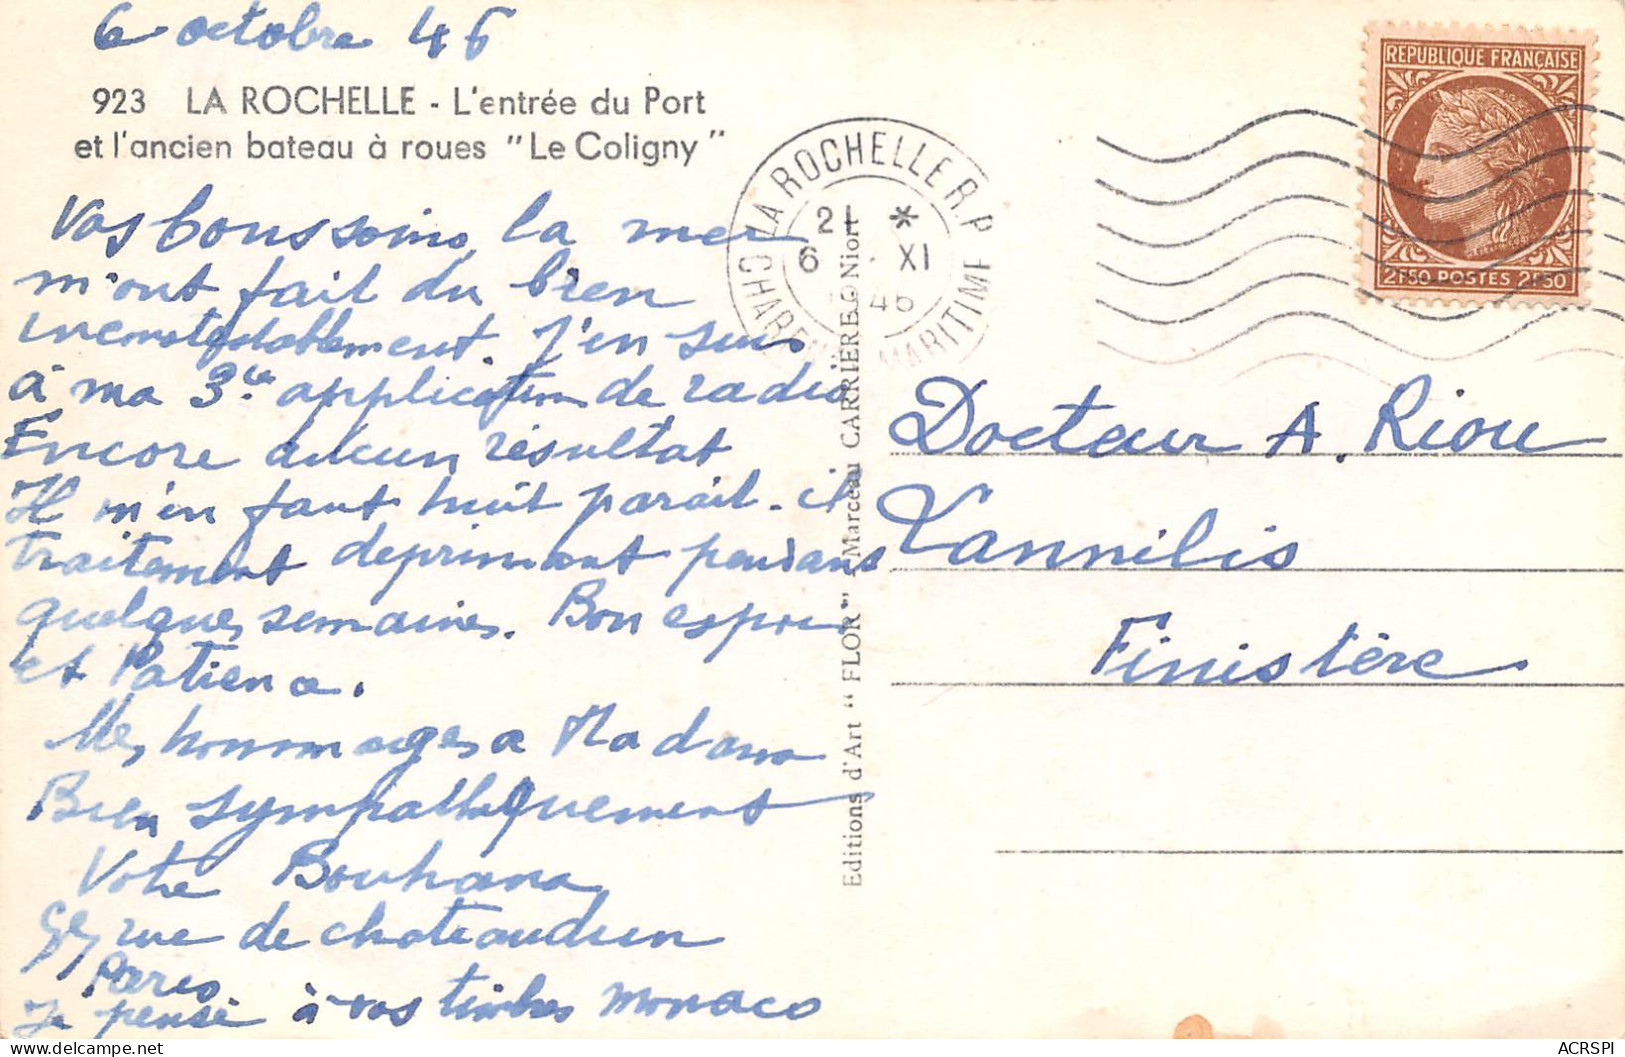 6 octobre 46
923 LA ROCHELLE - L'entrée du Port
et l'ancien bateau à roues "Le Coligny"
Vos bons soins, la mer
m'ont fait du bien
incontestablement. J'en suis
à ma 3e application de radio
Encore aucun résultat
Il m'en faut huit parait-il
traitement deprimant pendans
quelques semaines. Bon espoir
et Patience.
Mes hommages a Madame
Bien sympathiquement
Votre Bouhana
rue de chateaudun
Paris
Je pense à vos timbres Monaco
LA ROCHELLE R.P
21 *
6 XI
46
CHARENTE MARITIME
REPUBLIQUE FRANÇAISE
2F50 POSTES 2F50
Editions d'Art "FLOR" Marceau CARRIERE Niort
Docteur A. Riou
Lannilis
Finistère
ACRSPI